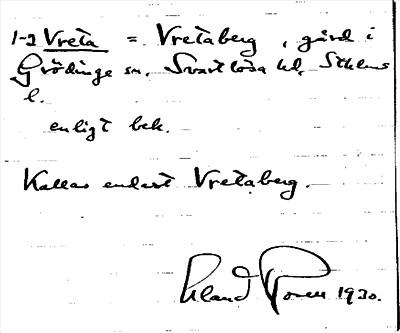 1-2 Vreta = Vretaberg, gård i
Grödinge sn, Svartlösa hd, Sthlms
l.
enligt bek.
Kallas endast Vretaberg.
Erland Rosell 1930.